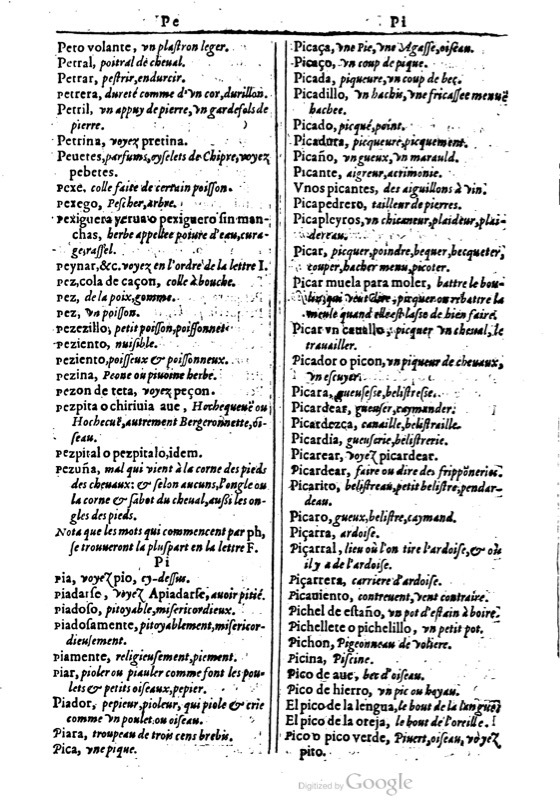 Pe
Peto volante, vn plastron leger.
Petral, poitral de cheual.
Petrar, pestrir, endurcir.
petrera, dureté comme d'vn cor, durillon.
Petril, vn appuy de pierre, vn gardefols de
pierre.
Petrina, voyez pretina.
Peuetes, parfums, oyselets de Chipre, voyez
pebetes.
pexe, colle faite de certain poisson.
pexego, Pescher, arbre.
pexiguera yerua o pexiguero sin man-
chas, herbe appellee poiure d'eau, cura-
ge, rassel.
peynar, &c. voyez en l'ordre de la lettre I.
pez, cola de caçon, colle à bouche.
pez, de la poix, gomme.
pez, vn poisson.
pezezillo, petit poisson, poissonnet.
peziento, nuisible.
peziento, poisseux & poissonneux.
pezina, Peone ou piuoine herbe.
pezon de teta, voyez peçon.
pezpita o chiriuia aue, Hochequeuë ou
Hochecul, autrement Bergeronnette, oi-
seau.
pezpital o pezpitalo, idem.
pezuña, mal qui vient à la corne des pieds
des cheuaux: & selon aucuns, l'ongle ou
la corne & sabot du cheual, aussi les on-
gles des pieds.
Nota que les mots qui commencent par ph,
se trouueront la pluspart en la lettre F.
Pi
pia, voyez pio, cy-dessus.
piadarse, voyez Apiadarse, auoir pitié.
piadoso, pitoyable, misericordieux.
piadosamente, pitoyablement, misericor-
dieusement.
piamente, religieusement, piement.
piar, pioler ou piauler comme font les pou-
lets & petits oiseaux, pepier.
Piador, pepieur, pioleur, qui piole & crie
comme vn poulet, ou oiseau.
Piara, troupeau de trois cens brebis.
Pica, vne pique.
Pi
Picaça, vne Pie, vne Agasse, oiseau.
Picaço, vn coup de pique.
Picada, piqueure, vn coup de bec.
Picadillo, vn hachis, vne fricassee menuë
hachee.
Picado, picqué, point.
Picadura, picqueure, picquement.
Picaño, vn gueux, vn maraud.
Picante, aigreur, acrimonie.
Vnos picantes, des aiguillons à vin.
Picapedrero, tailleur de pierres.
Picapleytos, vn chicaneur, plaideur, plai-
dereau.
Picar, picquer, poindre, bequer, becqueter,
couper, hacher menu, picoter.
Picar muela para moler, battre le bou-
qui veut dire, picquer ou rebattre la
meule quand elle est lasse de bien faire.
Picar vn cauallo, picquer vn cheual, le
trauailler.
Picador o picon, vn piqueur de cheuaux,
vn escuyer.
Picara, gueusesse, belistresse.
Picardear, gueuser, caymander.
Picardezca, canaille, belistraille.
Picardia, gueuserie, belistrerie.
Picarear, voyez picardear.
Picardear, faire ou dire des fripponeries.
Picarito, belistreau, petit belistre, pendar-
deau.
Picaro, gueux, belistre, caymand.
Piçarra, ardoise.
Piçarral, lieu où l'on tire l'ardoise, & où
il y a de l'ardoise.
Piçarrera, carriere d'ardoise.
Picauiento, contreuent, vent contraire.
Pichel de estaño, vn pot d'estain à boire.
Pichellete o pichelillo, vn petit pot.
Pichon, Pigeonneau de voliere.
Picina, Piscine.
Pico de aue, bec d'oiseau.
Pico de hierro, vn pic ou hoyau.
El pico de la lengua, le bout de la langue
El pico de la oreja, le bout de l'oreille.
Pico o pico verde, Piuert, oiseau, voyez
pito.
Digitized by Google